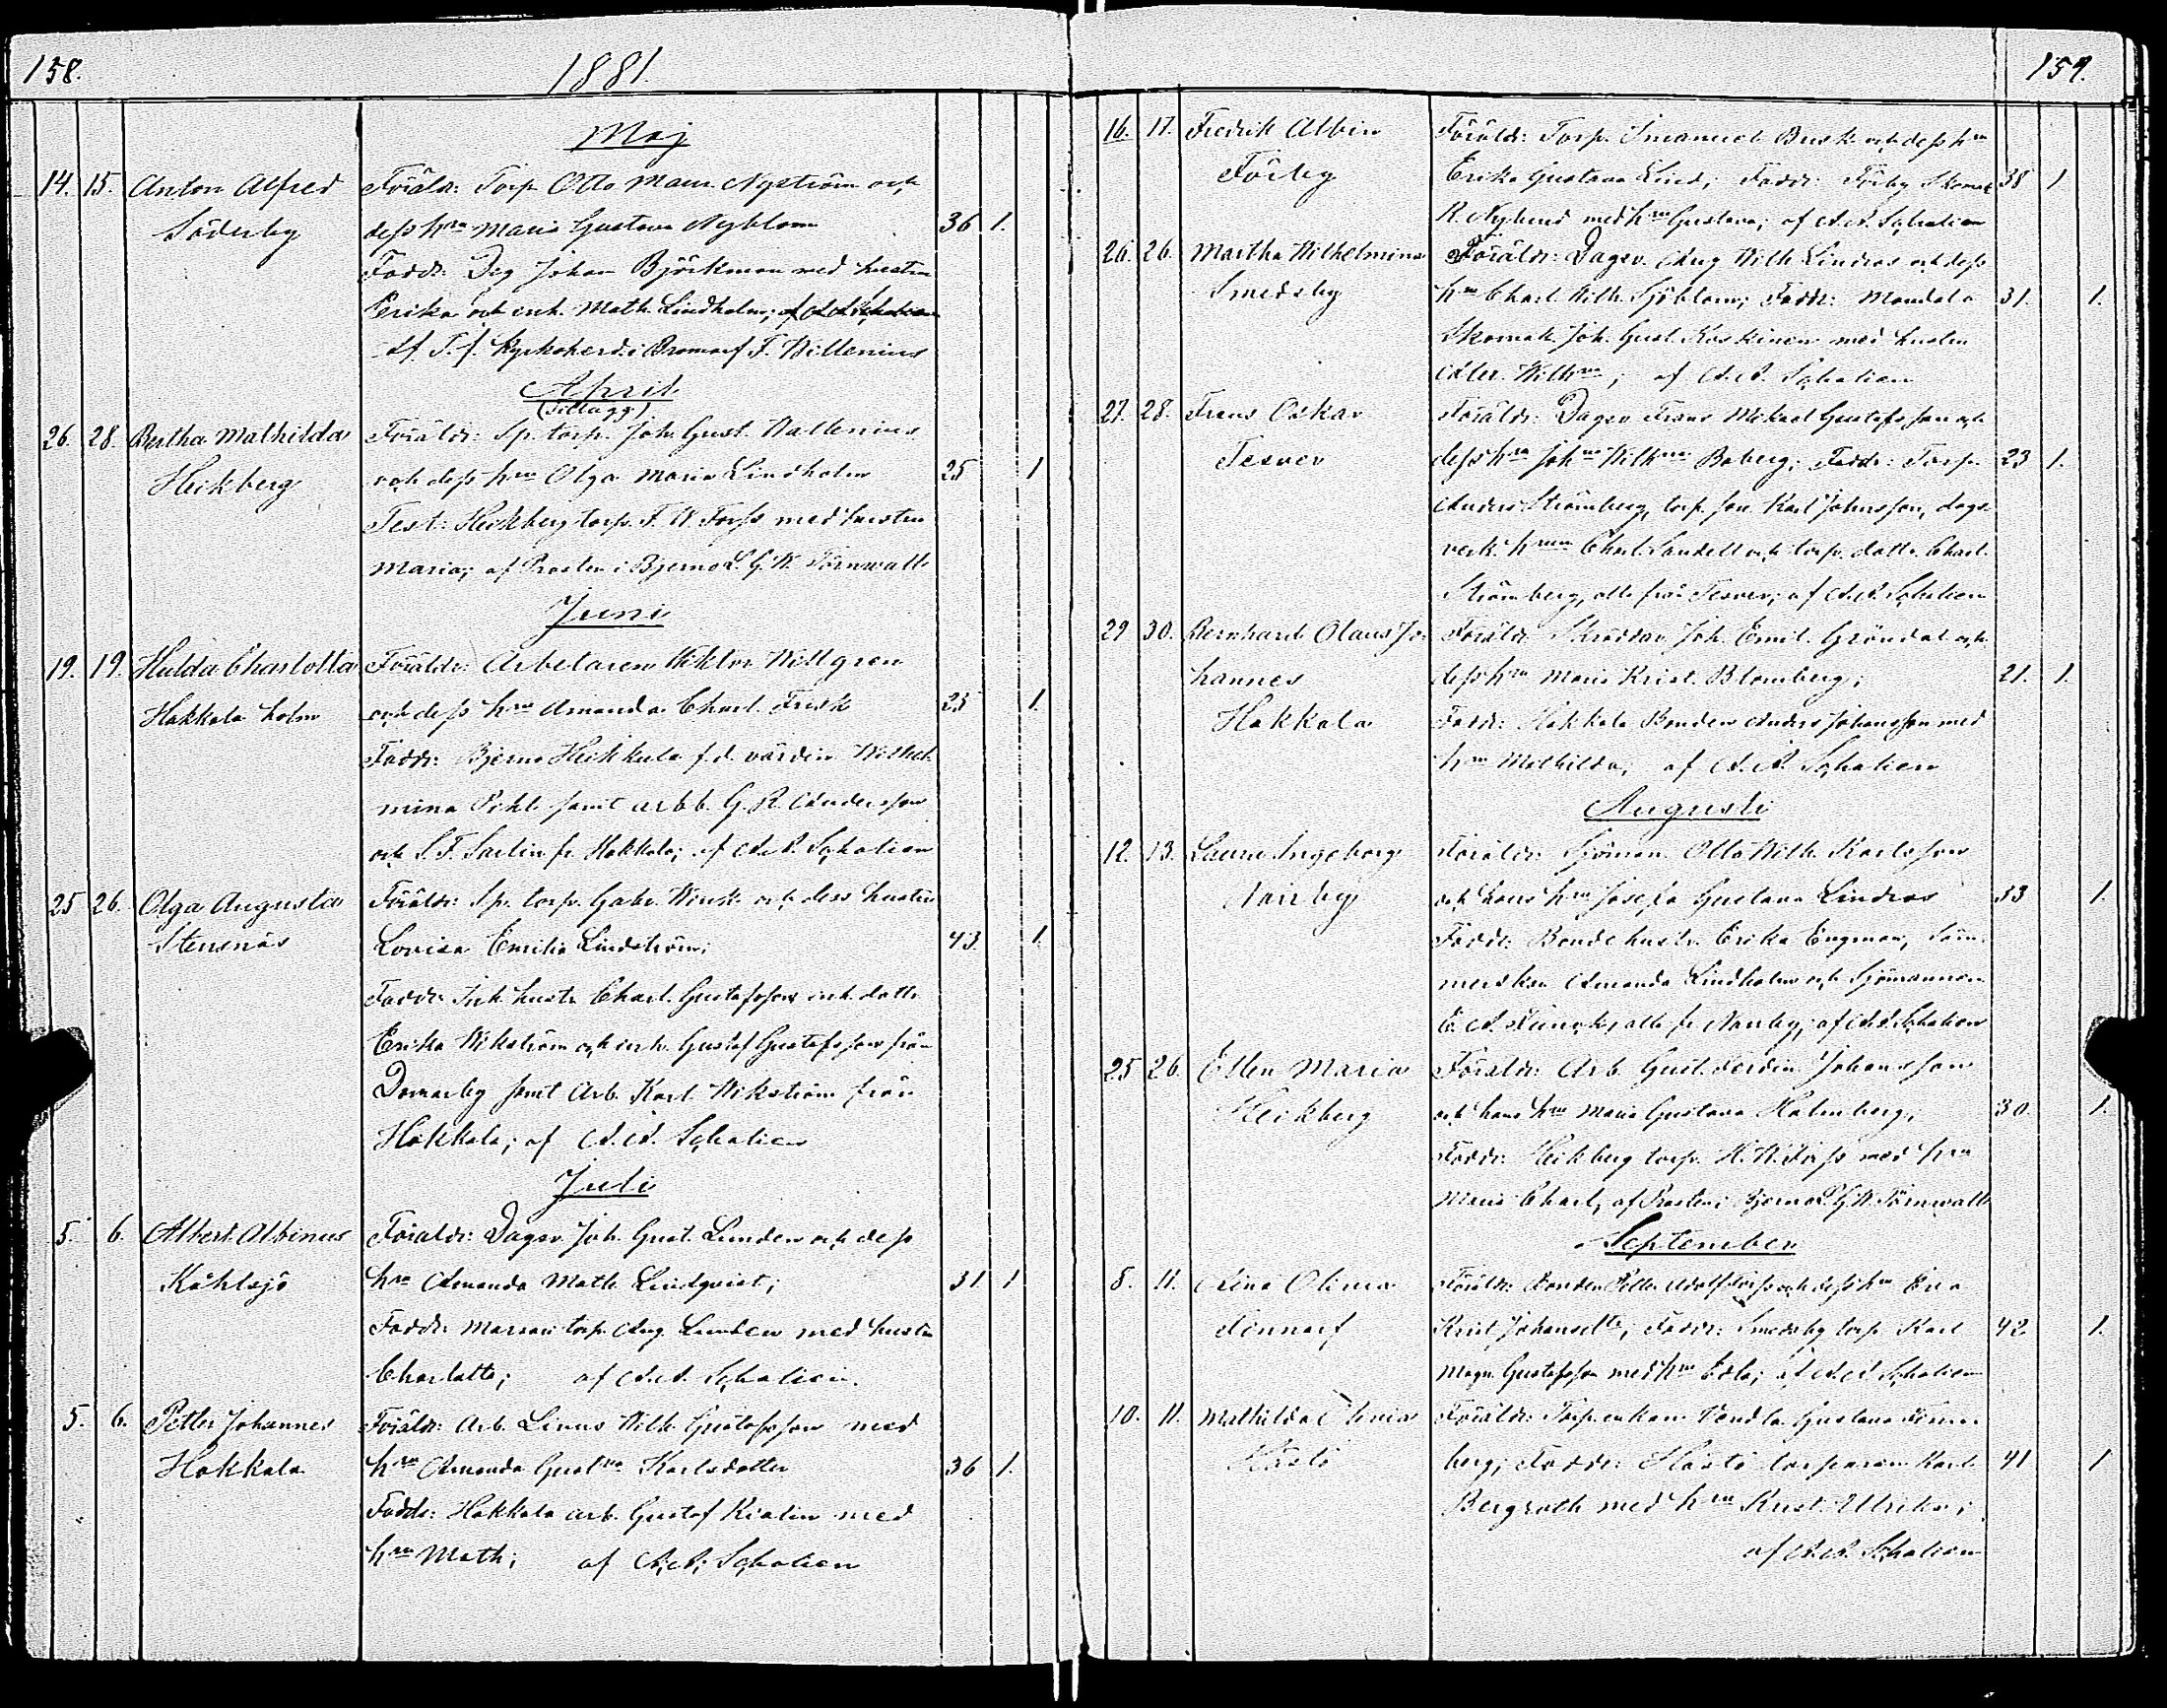 158.
1881.
Maj
14. 15. Anton Alfred Föräldr: Torp. Otto Maur. Nyström och
Söderby dess hru Maria Gustava Nyblom 36 1.
Faddr: Dag Johan Björkman med hustru
Erika och enk. Math. Lindholm; af A. A. Schalien
af T. f. Kyrkoherd. i Bromarf F. Willenius
April
(Tillägg)
26. 28. Bertha Mathilda Föräldr: Sp. torp. Joh. Gust. Wallenius
Heikberg och dess hru Olga Maria Lindholm 25 1
Test: Heikberg torp. F. W. Forss med hustru
Maria; af Prosten i Bjerno L. G. W. Törnwall
Juni
19. 19. Hulda Charlotta Föräldr: Arbetaren Wiktor Willgren
Hakkala holm och dess hru Amanda Charl. Frisk 25 1.
Faddr: Bjerno Heikkula f.d. värdin Wilhel
mina Pihl samt arbb. G. R. Andersson
och S. F. Sarlin fr Hakkala; af A. A. Schalien
25 26. Olga Augusta Föräldr: Sp. torp. Gabr. Wirsk. och dess hustru
Stensnäs Lovisa Emilia Lindström; 43. 1.
Faddr: Inh. hustr. Charl. Gustafsson inh. dottr.
Erika Wikström och inh. Gustaf Gustafsson från
Domarby samt Arb. Karl Wikström från
Hakkala; af A. A. Schalien
Juli
5. 6. Albert Albinus Föräldr: Dagsv. Joh. Gust. Lunden och dess
hru Amanda Math. Lindqvist; 31. 1
Faddr: torp. Aug. Lunden med hustru
Charlotta; af A. A. Schalien.
5. 6. Petter Johannes Föräldr: Arb. Linus Wilh. Gustafsson med
Hakkala hru Amanda Gustva Karlsdotter 36 1.
Faddr: Hakkala arb. Gustaf med
hru Math; af A. A. Schalien
159.
16. 17. Fredrik Albin Föräldr: Torp. Imanuel Busk och dess hru
Förby Erika Gustava Lind; Faddr: Förby Skomak 38 1.
R. Nylund med hru Gustava; af A. A. Schalien
26. 26. Martha Wilhelmina Föräldr: Dagsv. Aug. Wilh. Lindros och dess
Smedsby hru Charl. Wilh. Sjöblom; Faddr: 31. 1.
Skomak. Joh. Gust. Koskinen med hustru
Wilhna; af A. A. Schalien
27. 28. Frans Oskar Föräldr: Dagsv. Frans Mikael Gustafsson och
dess hru Johna Wilhna Boberg; Faddr: Torp. 23 1.
Anders Strömberg, torp. son Karl Johnsson, dags
verk. hrun Charl. Sandell och torp. dottr. Charl.
Strömberg, alla från af A. A. Schalien
29 30. Bernhard Olaus Jo Föräldr: Skräddar. Joh. Emil Gröndal och
hannes dess hru Maria Krist. Blomberg; 21. 1.
Hakkala Faddr: Hakkala Bonden Anders Johansson med
hru Mathilda; af A. A. Schalien
Augusti
12. 13. Laura Ingeborg Föräldr: Sjöman. Otto Wilh. Karlsson
och hans hru Josefa Gustava Lindros 33 1.
Faddr: Bondehustr. Erika Engman, söm
merskan Amanda Lindholm och Sjömannen
af A. A. Schalien
25 26. Ellen Maria Föräldr: Arb. Gust. Ferdin. Johansson
Heikberg och hans hru Maria Gustava Holmberg; 30. 1.
Faddr: Heikberg torp. H. W. Forss med hru
Maria Charl, af Prosten i Bjerno L. G. W. Törnwall
September
8. 11. Olivia Föräldr: Bonden Adolf Forss och dess hru Eva
Finnarf Krist. Johansdtr; Faddr: Smedsby torp. Karl 42. 1.
Magn. Gustafsson med hru Edla; af A. A. Schalien
10. 11. Mathilda Föräldr: Torp.enkan Vendla Gustava
Hästö berg; Faddr: Hästö torparen Karl 41 1
Bergroth med hru Krist. Ulrika;
af A. A. Schalien